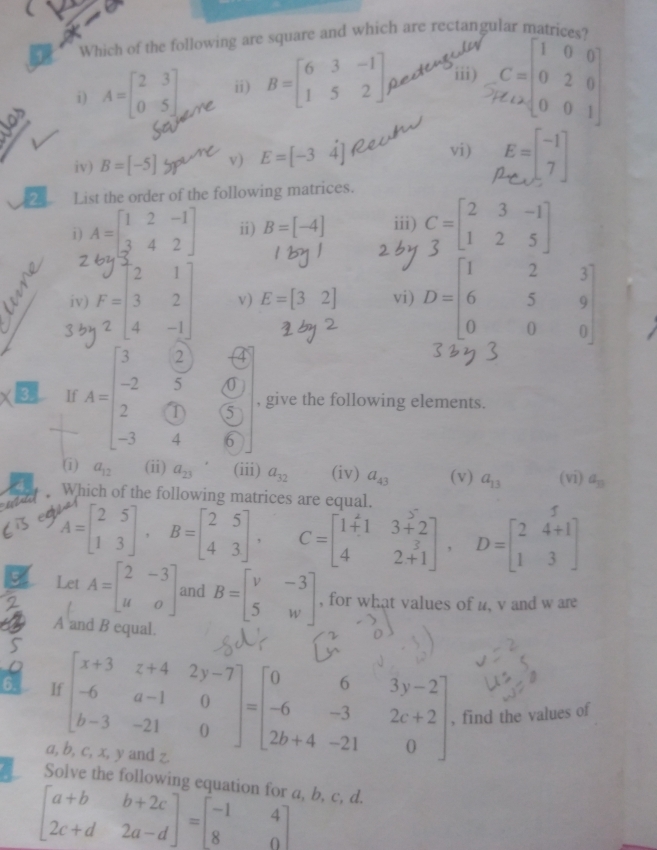 1. Which of the following are square and which are rectangular matrices?
i) A = [2 3; 0 5] ii) B = [6 3 -1; 1 5 2] rectangular iii) C = [1 0 0; 0 2 0; 0 0 1]
Square
iv) B = [-5] v) E = [-3 4] vi) E = [-1; 7]
2. List the order of the following matrices.
i) A = [1 2 -1; 3 4 2] ii) B = [-4] iii) C = [2 3 -1; 1 2 5]
2 by 3 1 by 1 2 by 3
iv) F = [2 1; 3 2; 4 -1] v) E = [3 2] vi) D = [1 2 3; 6 5 9; 0 0 0]
3 by 2 1 by 2 3 by 3
3. If A = [3 2 -4; -2 5 0; 2 1 5; -3 4 6], give the following elements.
(i) a12 (ii) a23 (iii) a32 (iv) a43 (v) a13 (vi)
4. Which of the following matrices are equal.
is equal
A = [2 5; 1 3], B = [2 5; 4 3], C = [1+1 3+2; 4 2+1], D = [2 4+1; 1 3]
5. Let A = [2 -3; u o] and B = [v -3; 5 w], for what values of u, v and w are
A and B equal.
Sol:
v = 2
u = 5
w = 0
6. If [x+3 z+4 2y-7; -6 a-1 0; b-3 -21 0] = [0 6 3y-2; -6 -3 2c+2; 2b+4 -21 0], find the values of
a, b, c, x, y and z.
Solve the following equation for a, b, c, d.
[a+b b+2c; 2c+d 2a-d] = [-1 4; 8 0]